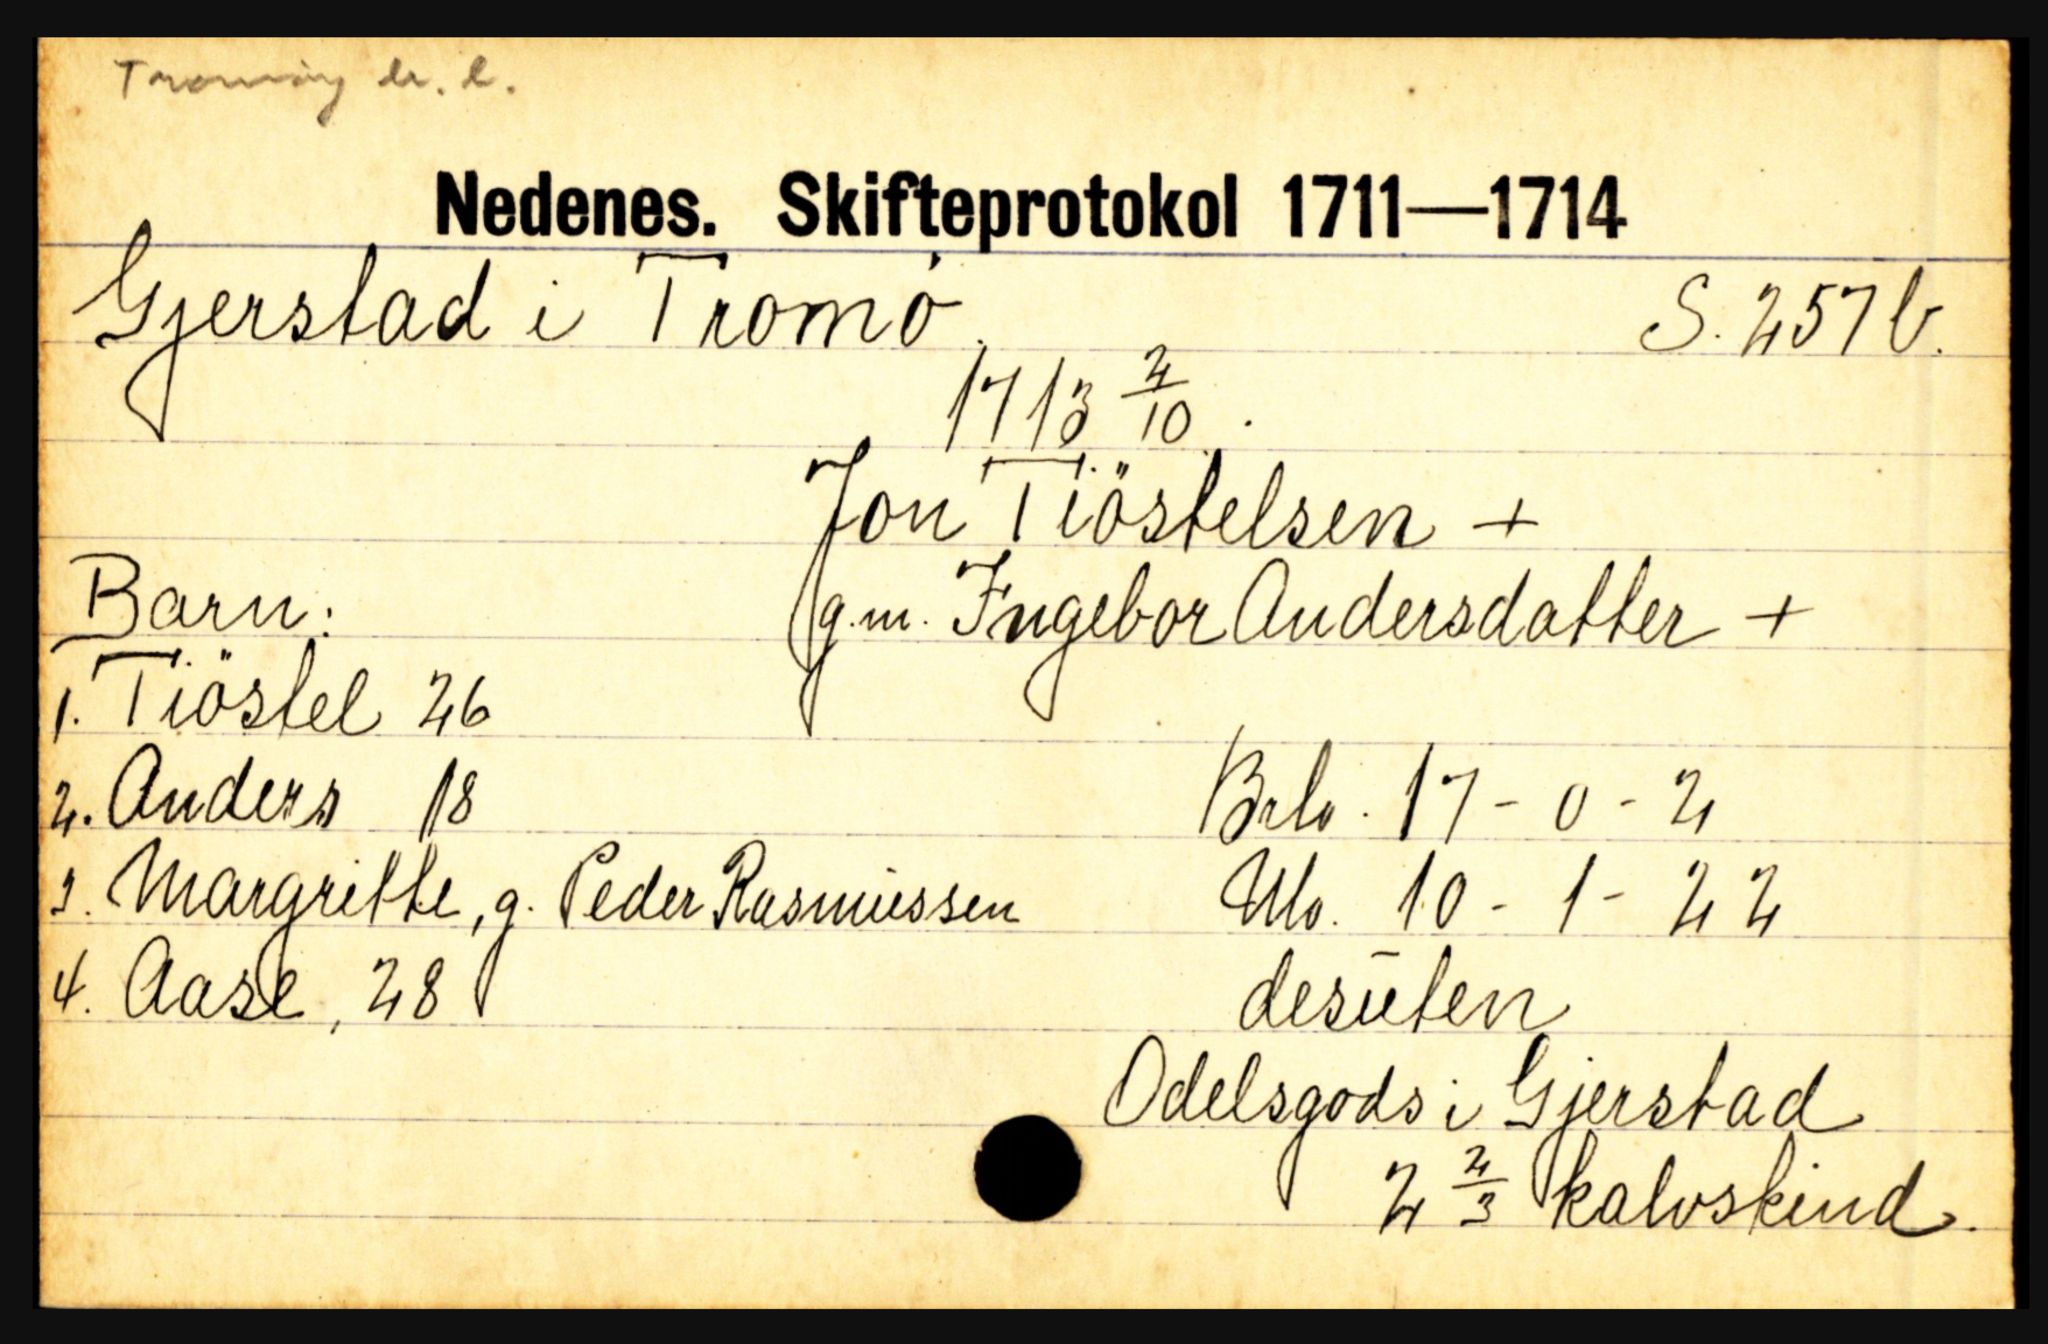 Tromöy
Nedenes. Skifteprotokol 1711—1714
Gjerstad i Tromö. S. 257 b.
1713 2/10.
Jon Tiöstelsen +
g.m. Ingebor Andersdatter +
Barn:
1. Tiöstel 26
2. Anders 18
3. Margritte, g. Peder Rasmussen
4. Aase, 28
Brto. 17 - 0 - 2
Nto. 10 - 1 - 22
desuten
Odelsgods i Gjerstad
2 2/3 kalvskind.